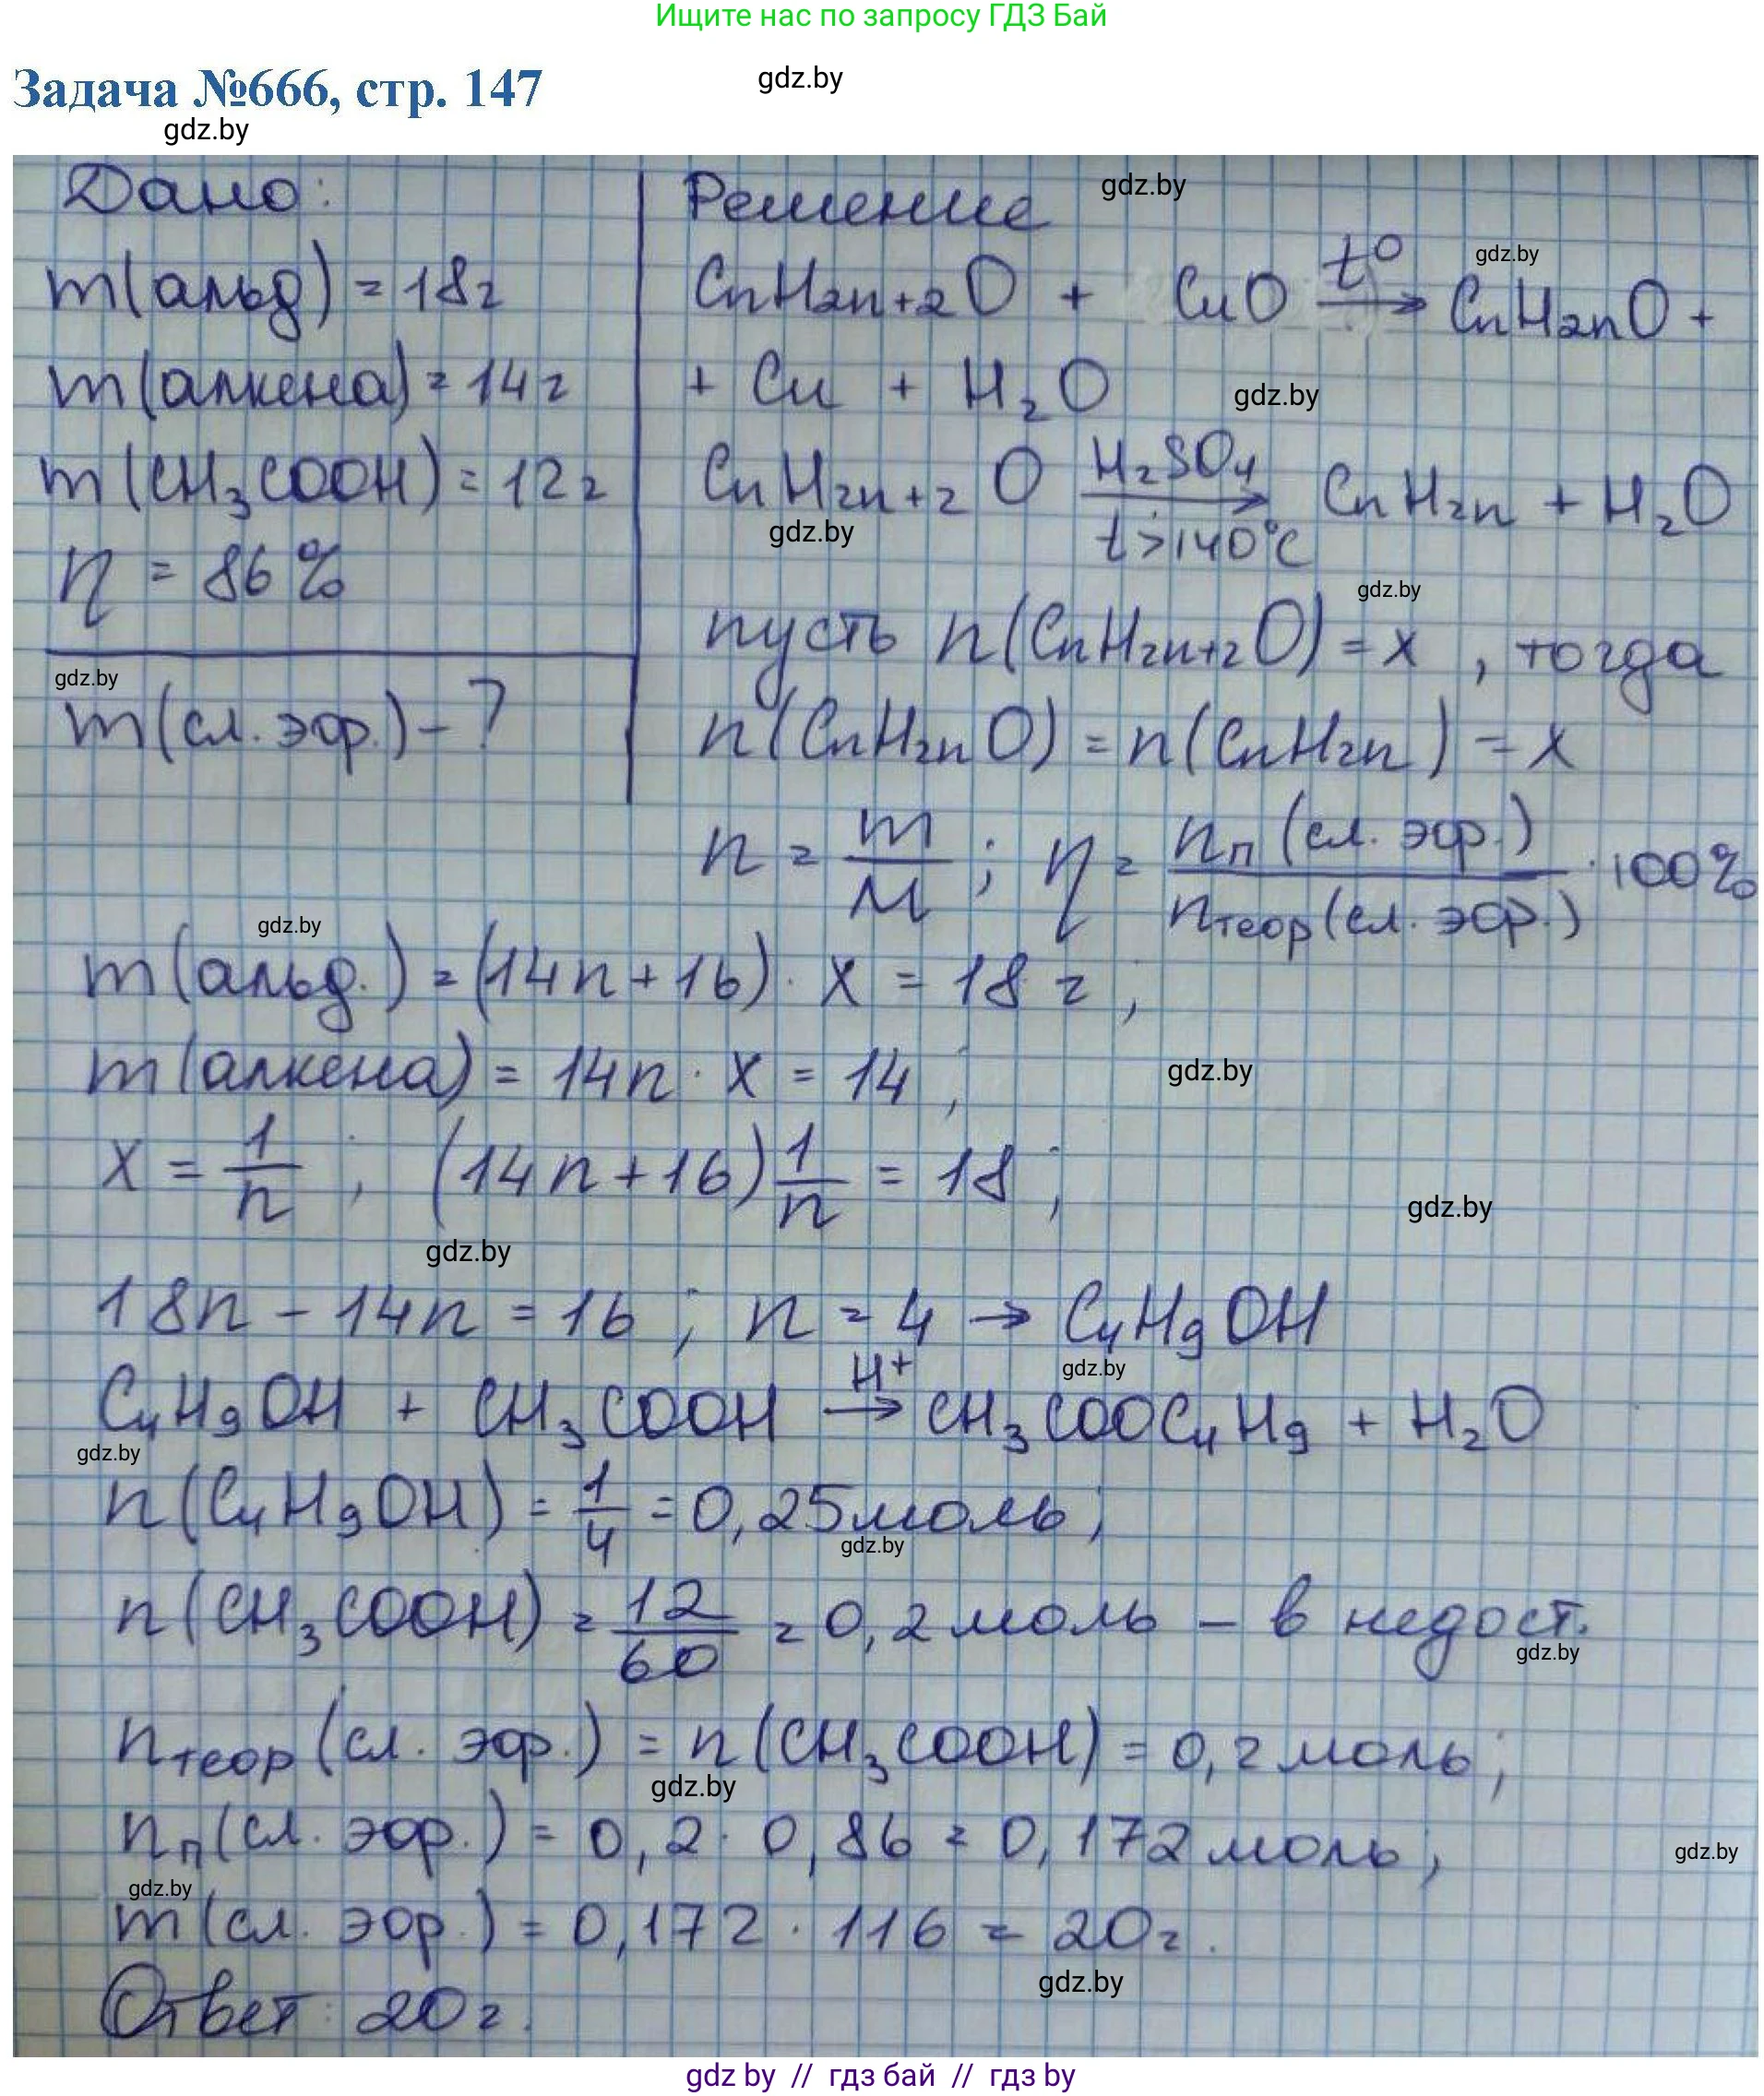 Ищите нас по запросу ГДЗ Бай
Задача №666, стр. 147
gdz.by
gdz.by
Дано:
m(альд) = 18г
m(алкена) = 14г
m(CH₃COOH) = 12г
η = 86%
gdz.by
m(сл. эфр.) - ?
Решение
gdz.by
CnH2n+2O + CuO t⁰→ CnH2nO +
gdz.by
+ Cu + H₂O
gdz.by
CnH2n+2O H₂SO₄ t>140°C → CnH2n + H₂O
gdz.by
gdz.by
пусть n(CnH2n+2O) = x, тогда
n(CnH2nO) = n(CnH2n) = x
n = m/M; η = nп(сл. эфр.)/nтеор(сл. эфр.) · 100%
gdz.by
m(альд.) = (14n+16) · x = 18 г;
m(алкена) = 14n · x = 14,
gdz.by
x = 1/n; (14n+16) 1/n = 18;
gdz.by
gdz.by
18n - 14n = 16; n = 4 → C₄H₉OH
gdz.by
C₄H₉OH + CH₃COOH H⁺→ CH₃COOC₄H₉ + H₂O
gdz.by
n(C₄H₉OH) = 1/4 = 0,25моль;
gdz.by
n(CH₃COOH) = 12/60 = 0,2моль – в недост.
gdz.by
nтеор(сл. эфр.) = n(CH₃COOH) = 0,2моль;
gdz.by
nп(сл. эфр.) = 0,2 · 0,86 = 0,172моль;
gdz.by
gdz.by
m(сл. эфр.) = 0,172 · 116 = 20г.
gdz.by
Ответ: 20г.
gdz by // гдз бай // гдз by